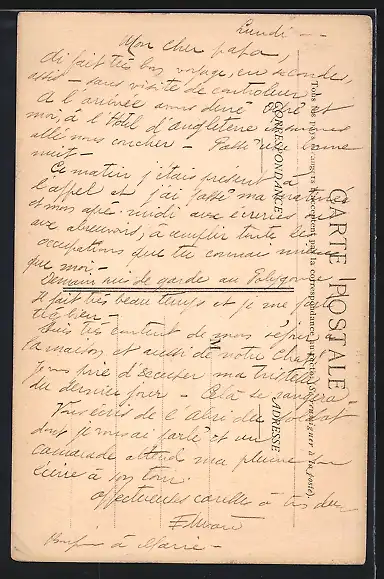 Lundi -
Mon cher papa,
Ai fait très bon voyage, en secondes,
assis - sans visite de contrôleur
A l'arrivée avons dîné et
moi, à l'Hôtel d'Angleterre et sommes
allé nous coucher - Passé une bonne
nuit -
Ce matin j'étais présent à
l'appel et j'ai passé ma matinée
et mon après-midi aux écuries et
aux abreuvoirs, à remplir toute les
occupations que tu connais mieux
que moi -
Demain suis de garde au Polygone
Il fait très beau temps et je me porte
très bien -
Suis très content de mon séjour
à la maison et aussi de notre
Je vous prie d'excuser ma tristesse
du dernier jour - Celà se passera
Vous écris de l'abri du soldat
dont je vous ai parlé et un
camarade attend ma plume pour
écrire à son tour.
Affectueuses caresses à tous deux
Edouard
à Marie -
CARTE POSTALE
Tous les pays étrangers n'acceptent pas la correspondance au recto. (Se renseigner à la poste).
CORRESPONDANCE
ADRESSE
M